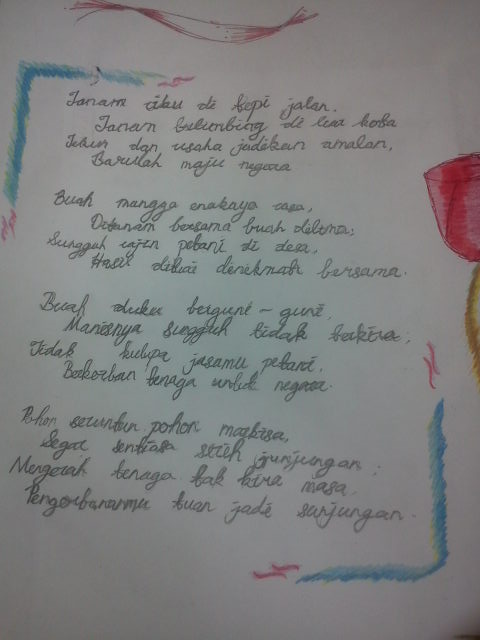 Tanam tebu di tepi jalan.
Tanam belimbing di luar kota
Tekun dan usaha jadikan amalan,
Barulah maju negara
Buah mangga enaknya rasa,
Ditanam bersama buah delima;
Sungguh rajin petani di desa,
Hasil dituai dinikmati bersama.
Buah duku berguni-guni,
Manisnya sungguh tidak terkira;
Tidak kulupa jasamu petani,
Berkorban tenaga untuk negara.
Pohon serumpun pohon markisa,
Segar sentiasa sirih junjungan;
Mengerah tenaga tak kira masa,
Pengorbananmu tuan jadi sanjungan.